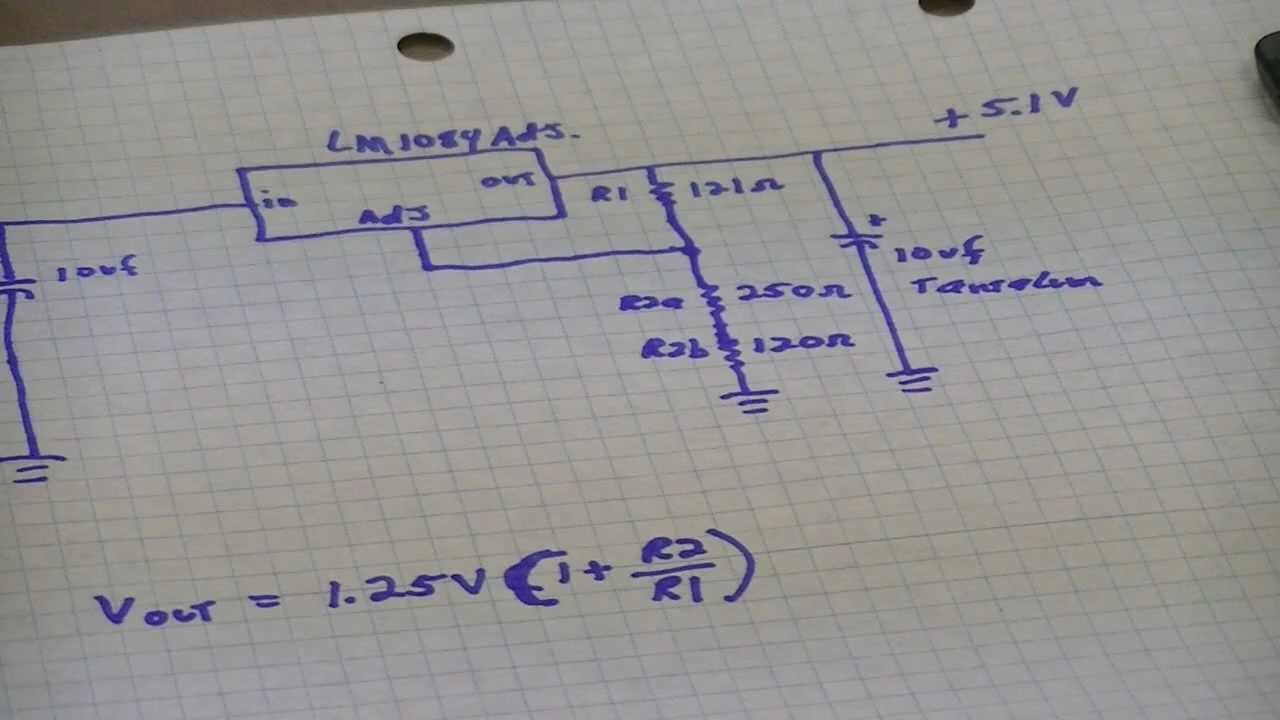 LM1084 Adj.
+5.1V
in
out
Adj
R1 121Ω
10uf
10uf
Tantalum
R2a 250Ω
R2b 120Ω
VOUT = 1.25V (1 + R2/R1)